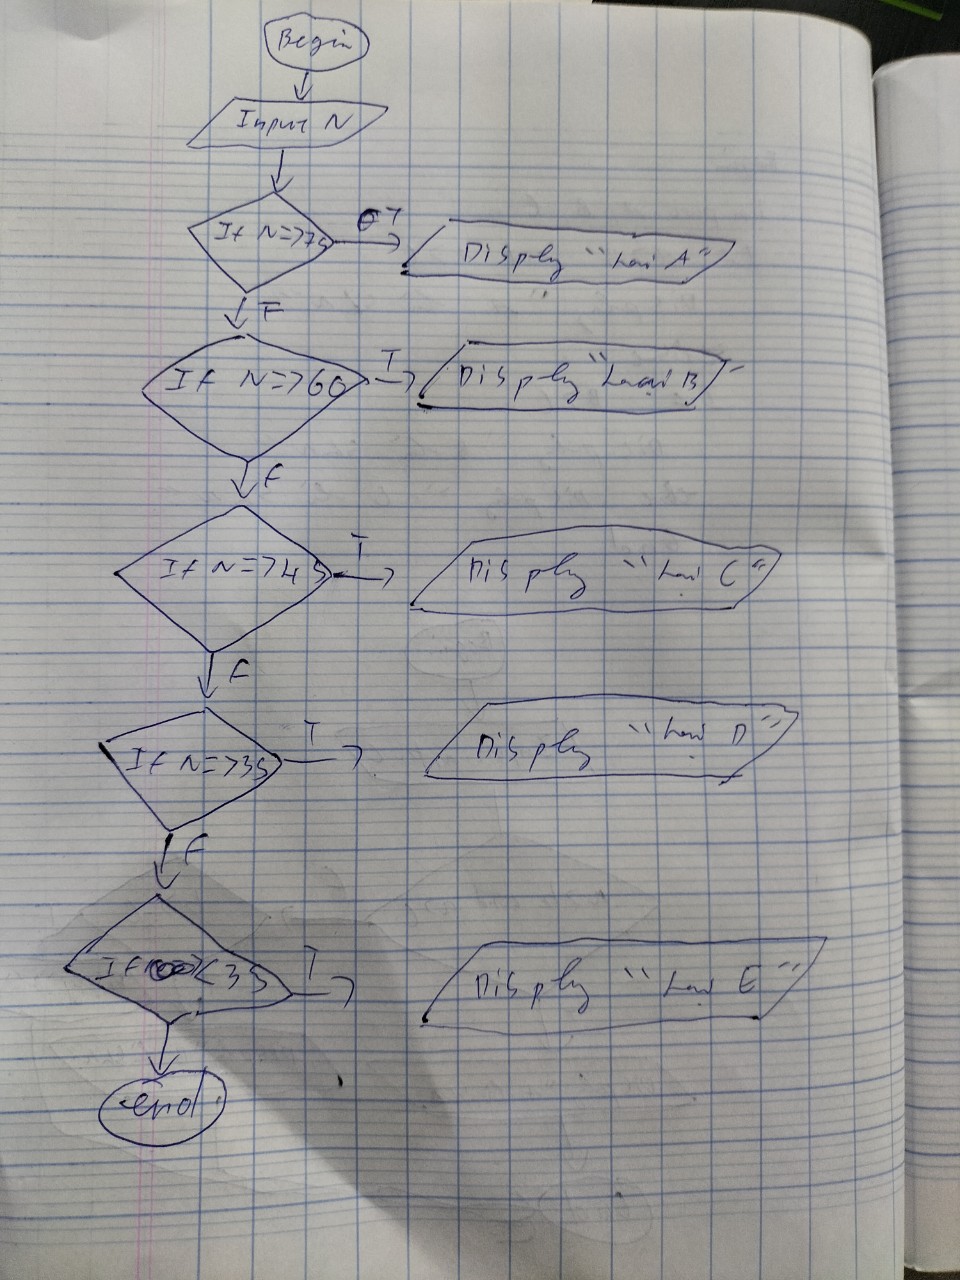 Begin
Input N
If N=>75
T
Display "Loai A"
F
If N=>60
T
Display "Loai B"
F
If N=>45
T
Display "Loai C"
F
If N=>35
T
Display "Loai D"
F
If <35
T
Display "Loai E"
end